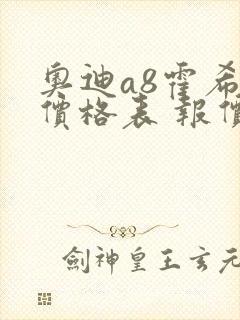 奧迪a8霍希
價格表 報價
劍神皇王玄元